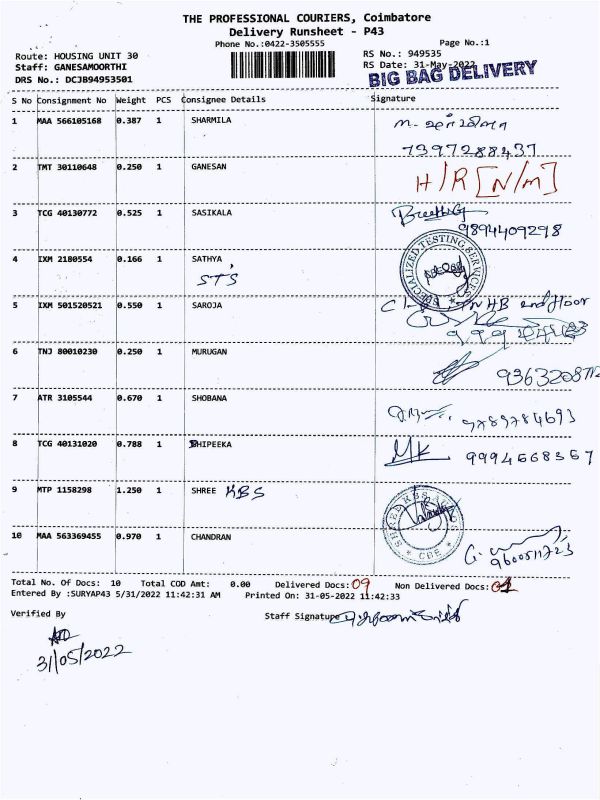 THE PROFESSIONAL COURIERS, Coimbatore
Delivery Runsheet - P43
Phone No.:0422-3505555 Page No.:1
Route: HOUSING UNIT 30 RS No.: 949535
Staff: GANESAMOORTHI RS Date: 31-May-2022
DRS No.: DCJB94953501 BIG BAG DELIVERY
S No Consignment No Weight PCS Consignee Details Signature
1 MAA 566105168 0.387 1 SHARMILA
7397288437
2 TMT 30110648 0.250 1 GANESAN H/R [N/M]
3 TCG 40130772 0.525 1 SASIKALA
9894409298
4 IXM 2180554 0.166 1 SATHYA
STS SPECIALIZED TESTING SERVICES
5 IXM 501520521 0.550 1 SAROJA
6 TNJ 80010230 0.250 1 MURUGAN
7 ATR 3105544 0.670 1 SHOBANA
9789784693
8 TCG 40131020 0.788 1 DHIPEEKA MK 9994568357
9 MTP 1158298 1.250 1 SHREE KBS
SHREE KBS
CBE
10 MAA 563369455 0.970 1 CHANDRAN
9600511723
Total No. Of Docs: 10 Total COD Amt: 0.00 Delivered Docs: 09 Non Delivered Docs: 01
Entered By :SURYAP43 5/31/2022 11:42:31 AM Printed On: 31-05-2022 11:42:33
Verified By Staff Signature
31/05/2022